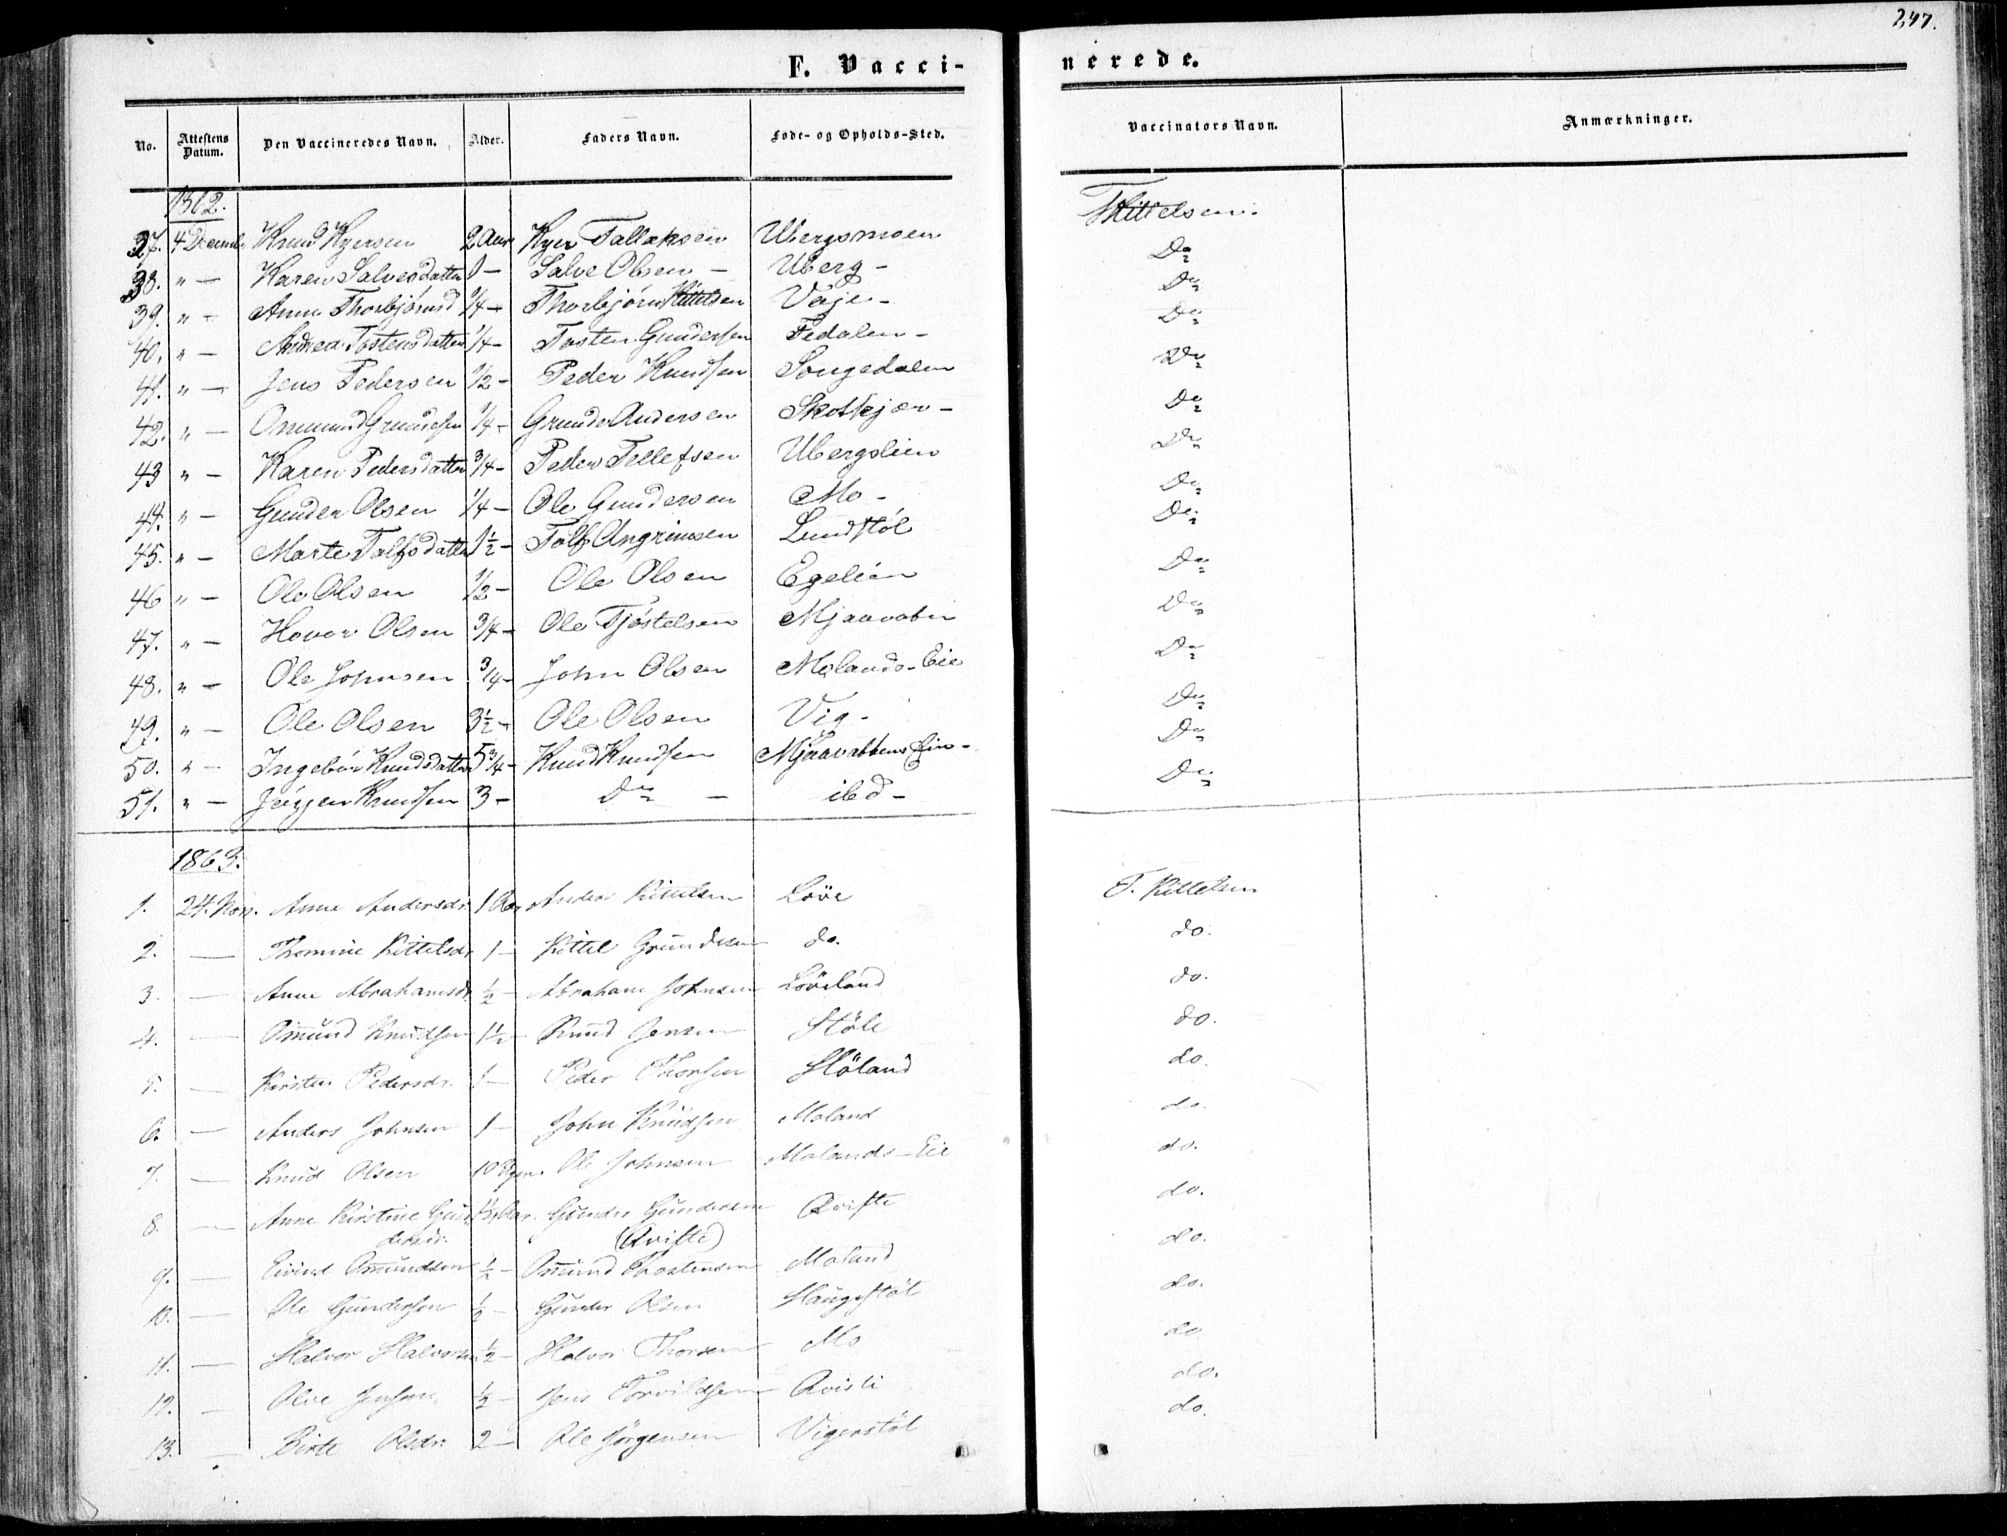 247.
F. Vaccinerede.
No. Attestens Datum. Den Vaccineredes Navn. Alder. Faders Navn. Føde- og Opholds-Sted. Vaccinators Navn. Anmærkninger.
1862.
37. 4 Decemb. Knud Kyersen 2 Aar Kyer Tallaksen Ubergsmoen TKittelsen.
38. " — Karen Salvesdatter 1 — Salve Olsen — Uberg — Do
39. " — Anne Thorbjørnsd 1/4 — Thorbjørn Kittelsen Vaje — Do
40. " — Andrea Tostensdatter 1/4 — Tosten Gundersen Fedalen — Do
41. " — Jens Pedersen 1/2 — Peder Knudsen Songedalen Do
42. " — Ommund Grundesen 1/4 — Grunde Andersen Skotkjær — Do
43 " — Karen Pedersdatter 3/4 — Peder Tellefsen Ubergslien Do
44. " — Gunder Olsen 1/4 — Ole Gundersen Mo — Do
45. " — Marte Talfsdatter 1 1/2 — Talf Angrimsen Lundstøl Do
46 " — Ole Olsen 1/2 — Ole Olsen Egelien Do
47. " — Hovor Olsen 3/4 — Ole Tjøstelsen Mjaavatn Do
48. " — Ole Johnsen 3/4 — John Olsen Molands-Eie Do
49. " — Ole Olsen 3 1/2 — Ole Olsen Vig — Do
50. " — Ingebør Knudsdatter 5 3/4 — Knud Knudsen Mjaavattens Eie — Do
51. " — Jørgen Knudsen 3 — Do — ibd — Do
1863.
1. 24. Nov. Anne Andersdr. 1 Aar Anders Kittelsen Løve T. Kittelsen
2. — Thomine Kittelsdr. 1 — Kittel Grundesen do. do.
3. — Anne Abrahamsdr. 1/2 — Abraham Johnsen Løveland do.
4. — Omund Knudsen 1 1/2 — Knud Jensen Støle do.
5. — Kirsten Pedersdr. 1 — Peder Thorsen Høland do.
6. — Anders Johnsen 1 — John Knudsen Moland do.
7. — Knud Olsen 10 Ole Johnsen Molands-Eie do.
8. — Anne Kirstine Gundersdr. Aar. Gunder Gundersen (Qviste) Qviste do.
9. — Eivind Omundsen 1/2 — Omund Thostensen Moland do.
10. — Ole Gundersen 1/2 — Gunder Olsen Haugestøl do.
11. — Halvor Halvorsen 1/2 — Halvor Thorsen Mo do
12. — Olve Jensen 1/2 — Jens Torvildsen Qvisti do.
13. — Birte Olsdr. 2 — Ole Jørgensen Vigerstøl do.